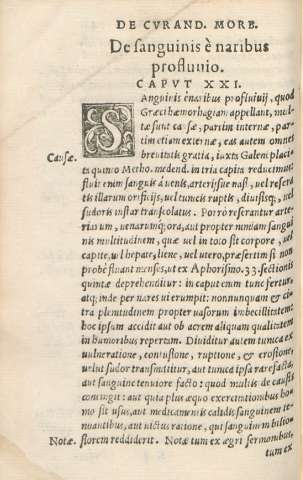 DE CVRAND. MORB.
De sanguinis è naribus
profluuio.
CAPVT XXI.
SAnguinis è naribus profluuij, quod
Græci hæmorhagiam appellant, mul-
tæ sunt causæ, partim internæ, par-
tim etiam externæ, eas autem omnes
Causæ.
breuitatis gratia, iuxta Galeni placi-
ta quinto Metho. medend. in tria capita reducimus:
fluit enim sanguis à uenis, arterijsue nasi, uel reserá
tis illarum orificijs, uel tunicis ruptis, diuisisq;, uel
sudoris instar transcolatus. Porrò reserantur arte-
riarum, uenarumq; ora, aut propter nimiam sangui
nis multitudinem, quæ uel in toto sit corpore, uel
capite, uel hepate, liene, uel utero, præsertim si non
probè fluant menses, ut ex Aphorismo. 33. sectionis
quintæ deprehenditur: in caput enim tunc fertur,
atq; inde per nares uierumpit: nonnunquam & ci-
tra plenitudinem propter uasorum imbecillitatem:
hoc ipsum accidit aut ob acrem aliquam qualitatem
in humoribus repertam. Diuiditur autem tunica ex
uulneratione, contusione, ruptione, & erosione,
uelut sudor transmittitur, aut tunica ipsa rarefacta,
aut sanguine tenuiore facto: quod multis de causis
contingit: aut quia plus æquo exercitationibus ho-
mo sit usus, aut medicamentis calidis sanguinem te-
nuantibus, aut uictus ratione, qui sanguinem bilio-
Notæ.
florem reddiderit. Notæ tum ex ægri sermonibus,
tum ex